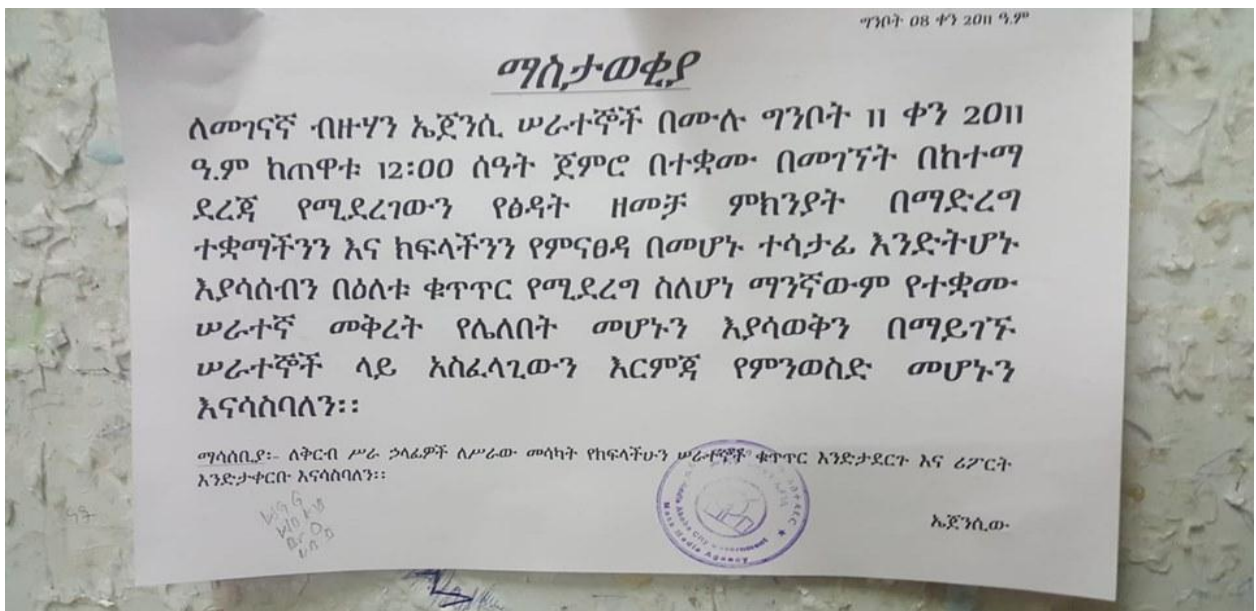 ግንቦት 08 ቀን 2011 ዓ.ም
ማስታወቂያ
ለመገናኛ ብዙሃን ኤጀንሲ ሠራተኞች በሙሉ ግንቦት 11 ቀን 2011
ዓ.ም ከጠዋቱ 12፡00 ሰዓት ጀምሮ በተቋሙ በመገኘት በከተማ
ደረጃ የሚደረገውን የፅዳት ዘመቻ ምክንያት በማድረግ
ተቋማችንን እና ክፍላችንን የምናፀዳ በመሆኑ ተሳታፊ እንድትሆኑ
እያሳሰብን በዕለቱ ቁጥጥር የሚደረግ ስለሆነ ማንኛውም የተቋሙ
ሠራተኛ መቅረት የሌለበት መሆኑን እያሳወቅን በማይገኙ
ሠራተኞች ላይ አስፈላጊውን እርምጃ የምንወስድ መሆኑን
እናሳስባለን፡፡
ማሳሰቢያ፡- ለቅርብ ሥራ ኃላፊዎች ለሥራው መሳካት የክፍላችሁን ሠራተኞች ቁጥጥር እንድታደርጉ እና ሪፖርት
እንድታቀርቡ እናሳስባለን፡፡
Mass Media Agency
ኤጀንሲው